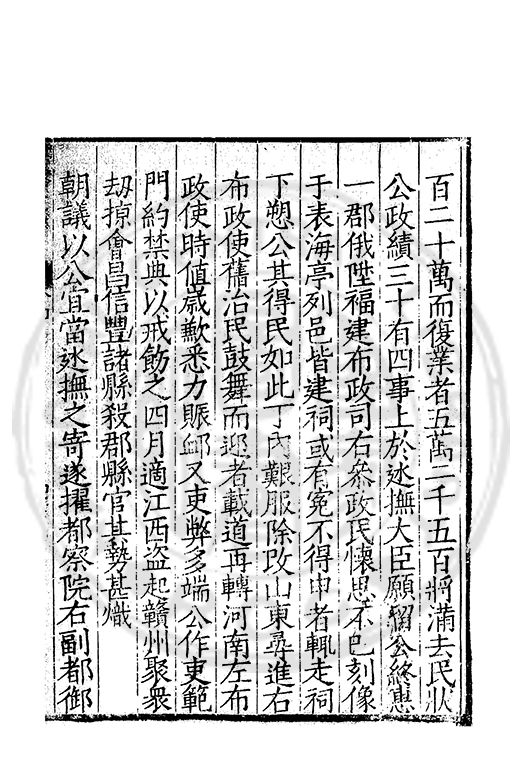 百二十萬而復業者五萬二千五百將滿去民狀
公政績三十有四事上於廵撫大臣願留公終惠
一郡俄陞福建布政司右叅政民懷思不已刻像
于表海亭列邑皆建祠或有寃不得申者輒走祠
下愬公其得民如此丁內艱服除改山東尋進右
布政使舊治民鼓舞而迎者載道再轉河南左布
政使時値歲歉悉力賑䘏又吏弊多端公作吏範
門約禁典以戒飭之四月適江西盗起贛州聚衆
刼掠會昌信豐諸縣殺郡縣官其勢甚熾
朝議以公宜當廵撫之寄遂擢都察院右副都御